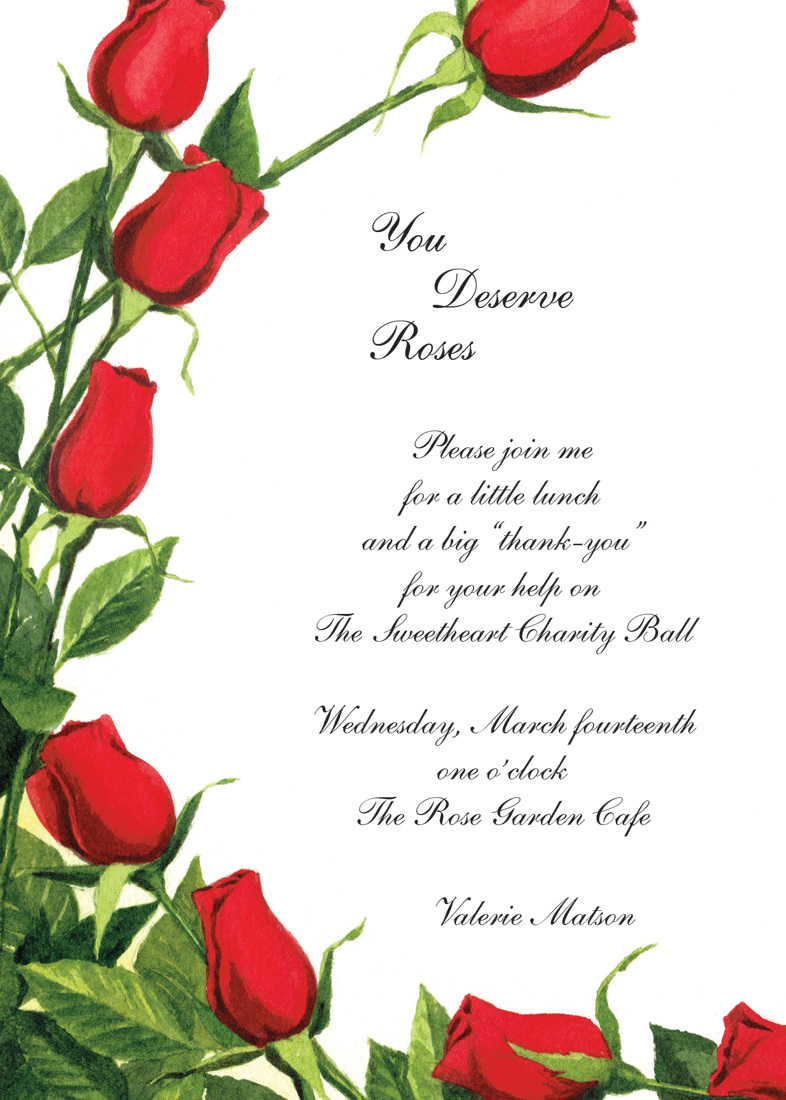 You
Deserve
Roses
Please join me
for a little lunch
and a big “thank-you”
for your help on
The Sweetheart Charity Ball
Wednesday, March fourteenth
one o’clock
The Rose Garden Cafe
Valerie Matson